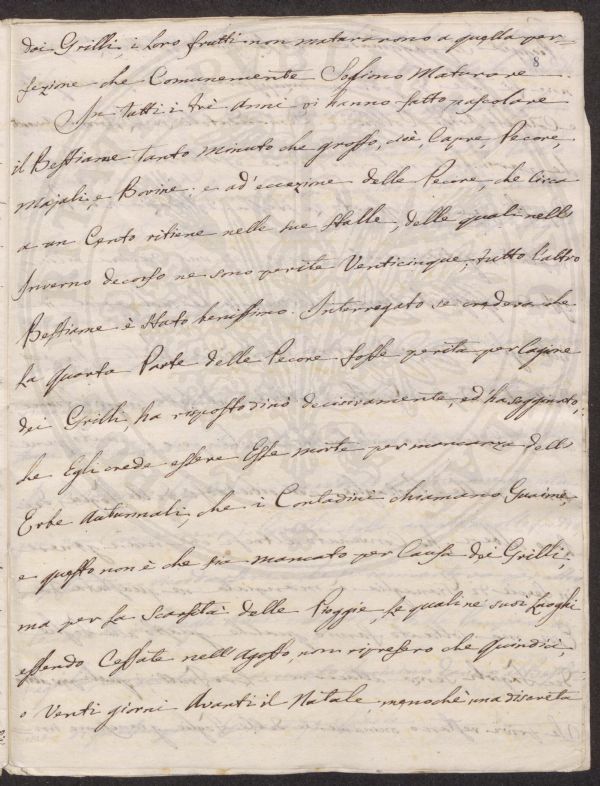 8
dei Grilli, i loro frutti non maturarono a quella per=
fezione che Comunemente Sogliono Maturare.
In tutti i trè Anni vi hanno fatto pascolare
il Bestiame tanto minuto che grosso, cioè, Capre, Pecore,
Majali, e Bovine: e ad' eccezione delle Pecore, che Circa
a un Cento ritiene nelle sue Stalle, delle quali nell'
Inverno decorso ne sono perite Venticinque, tutto l'altro
Bestiame è stato benissimo. Interrogato se credeva che
la quarta Parte delle Pecore fosse perita per cagione
dei Grilli, ha risposto di nò decisivamente, ed ha soggiunto,
che Egli crede essere Esse morte per mancanza dell'
Erbe Autunnali, che i Contadini chiamano Guaime,
e questo non è che sia mancato per Causa dei Grilli,
ma per la Scarsità delle Pioggie, le quali ne' suoi Luoghi
essendo Cessate nell' Agosto, non ripresero che quindici,
o Venti giorni Avanti il Natale menochè una discreta